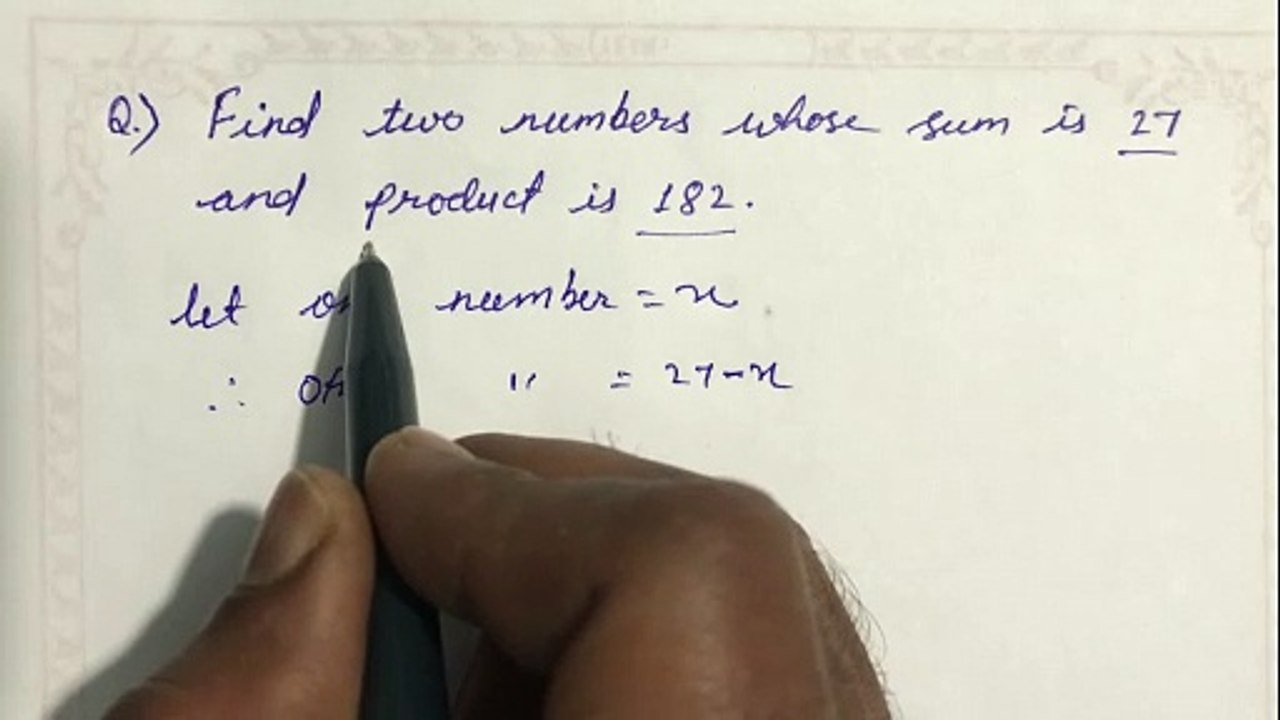 Q.) Find two numbers whose sum is 27
and product is 182.
let number = x
∴ " = 27-x